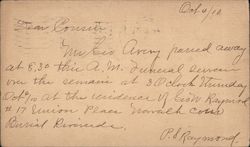 Oct 9/12
Dear Cousin
Mr Geo Avery passed away
at 8.30 this A.M. Funeral services
on the remains at 3 O'Clock Thursday
Oct 10 at the residence of Raymond
# 17 Union Place Norwalk Conn
Burial Riverside.
P.S. Raymond